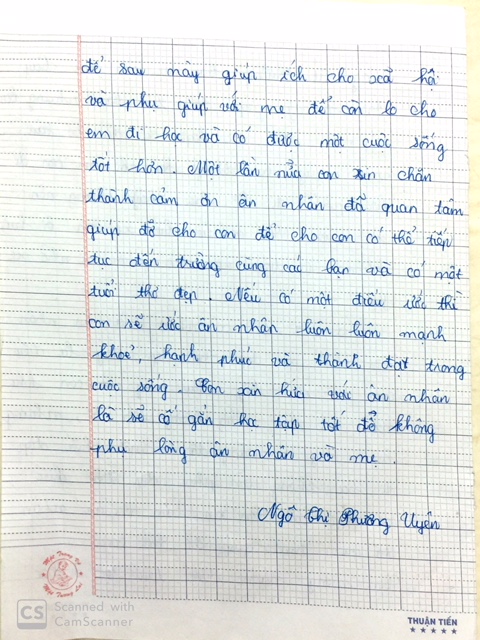 để sau này giúp ích cho xã hội
và phụ giúp với mẹ để còn lo cho
em đi học và có được một cuộc sống
tốt hơn. Một lần nữa con xin chân
thành cảm ơn ân nhân đã quan tâm
giúp đỡ cho con để cho con có thể tiếp
tục đến trường cùng các bạn và có một
tuổi thơ đẹp. Nếu có một điều ước thì
con sẽ ước ân nhân luôn luôn mạnh
khoẻ, hạnh phúc và thành đạt trong
cuộc sống. Con xin hứa với ân nhân
là sẽ cố gắn học tập tốt để không
phụ lòng ân nhân và mẹ.
Ngô Thị Phương Uyên
CS Scanned with
CamScanner
THUẬN TIẾN